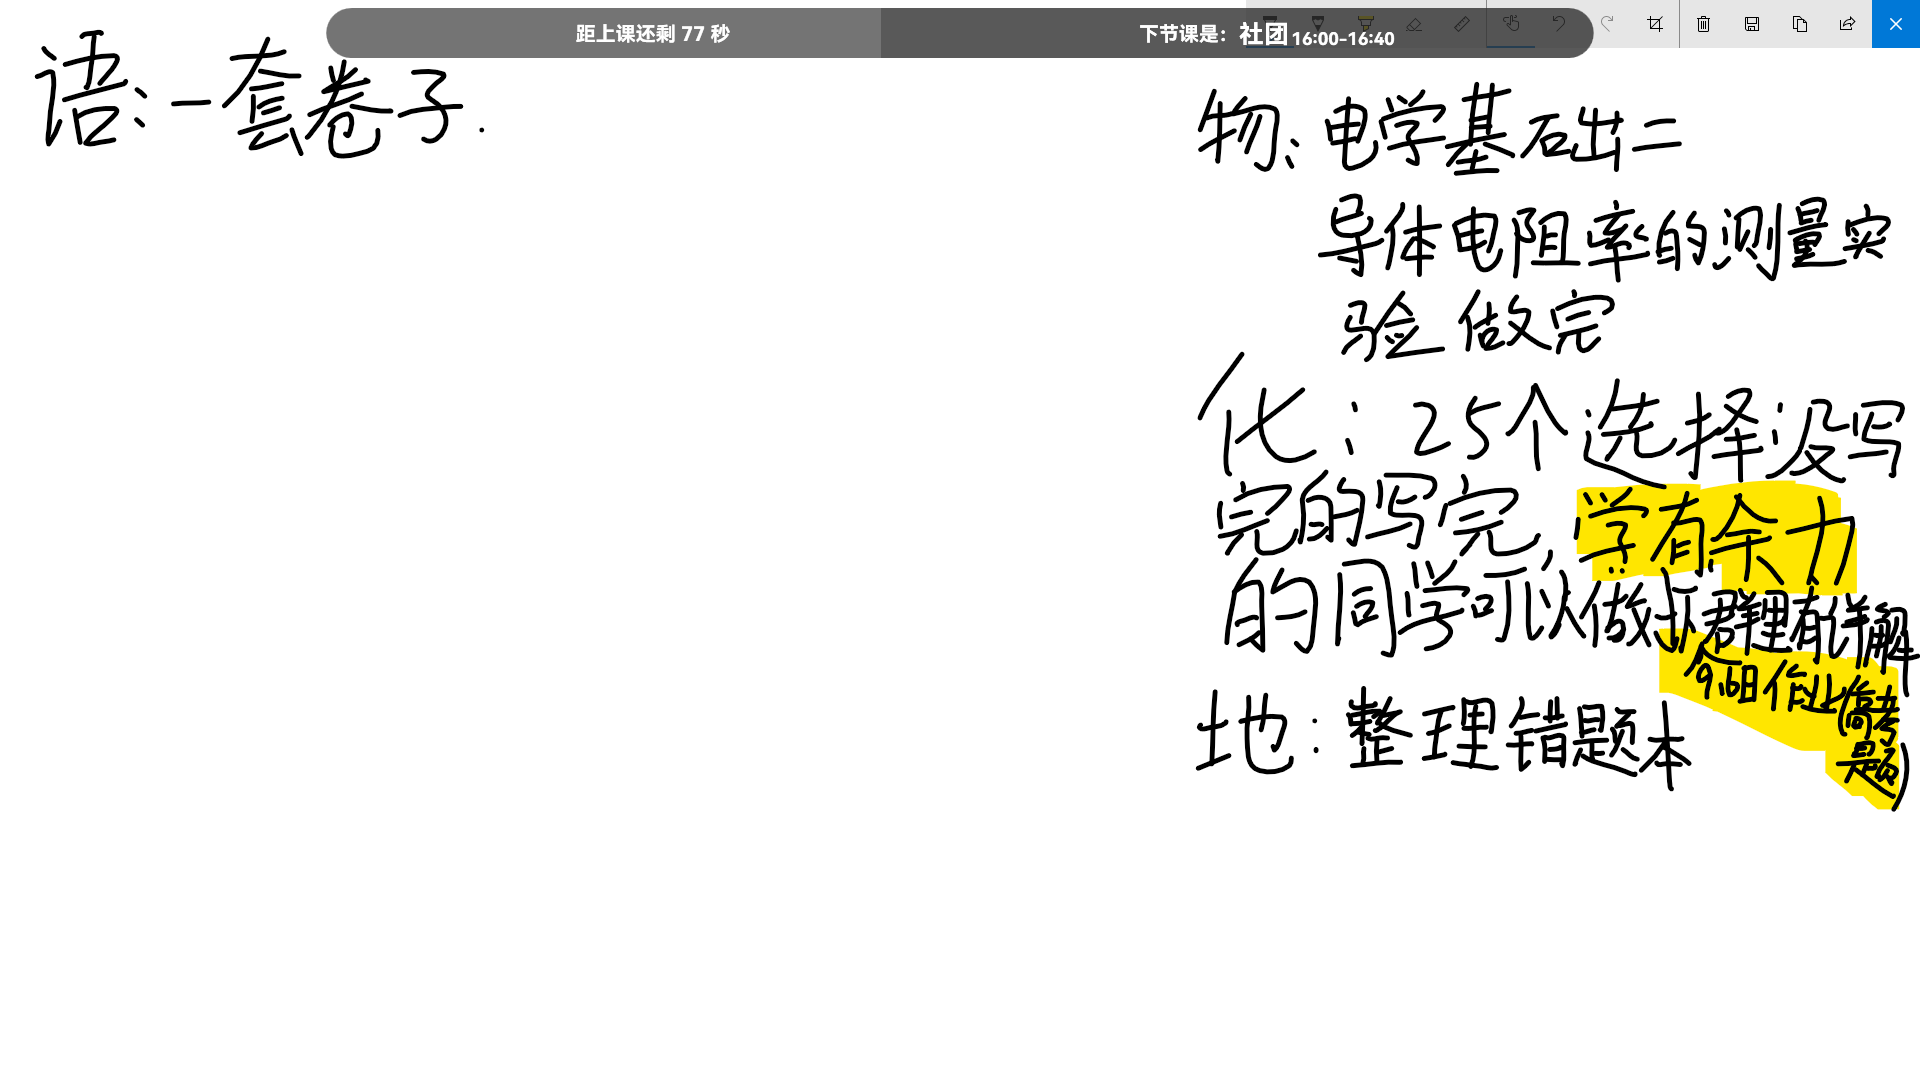 距上课还剩 77 秒
下节课是：社团 16:00-16:40
语：一套卷子.
物：电学基础二
导体电阻率的测量实
验 做完
化：25个选择没写
完的写完，学有余力
的同学可以做 群里有详解
9.16日作业(高考
题)
地：整理错题本